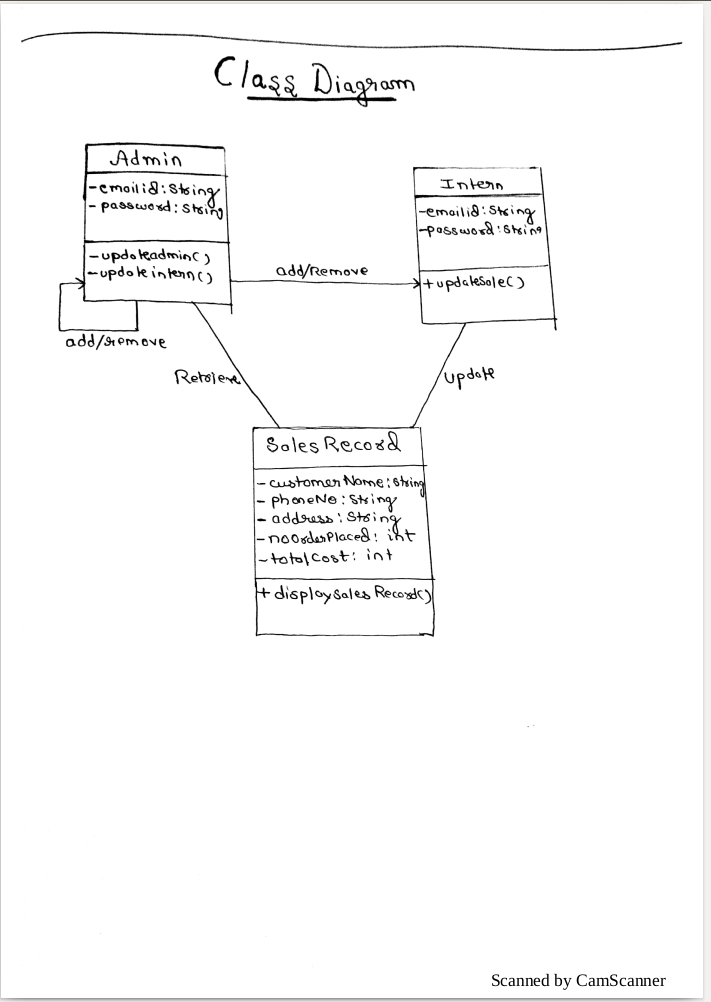 Class Diagram
Admin
-emailid:String
- password:String
-updateadmin()
-updateintern()
add/remove
add/Remove
Intern
-emailid:String
-password:String
+updateSale()
Retrieve
update
SalesRecord
- customerName:String
- phoneNo:String
- address:String
-noOrderPlaced: int
-totalCost: int
+ displaySales Record()
Scanned by CamScanner